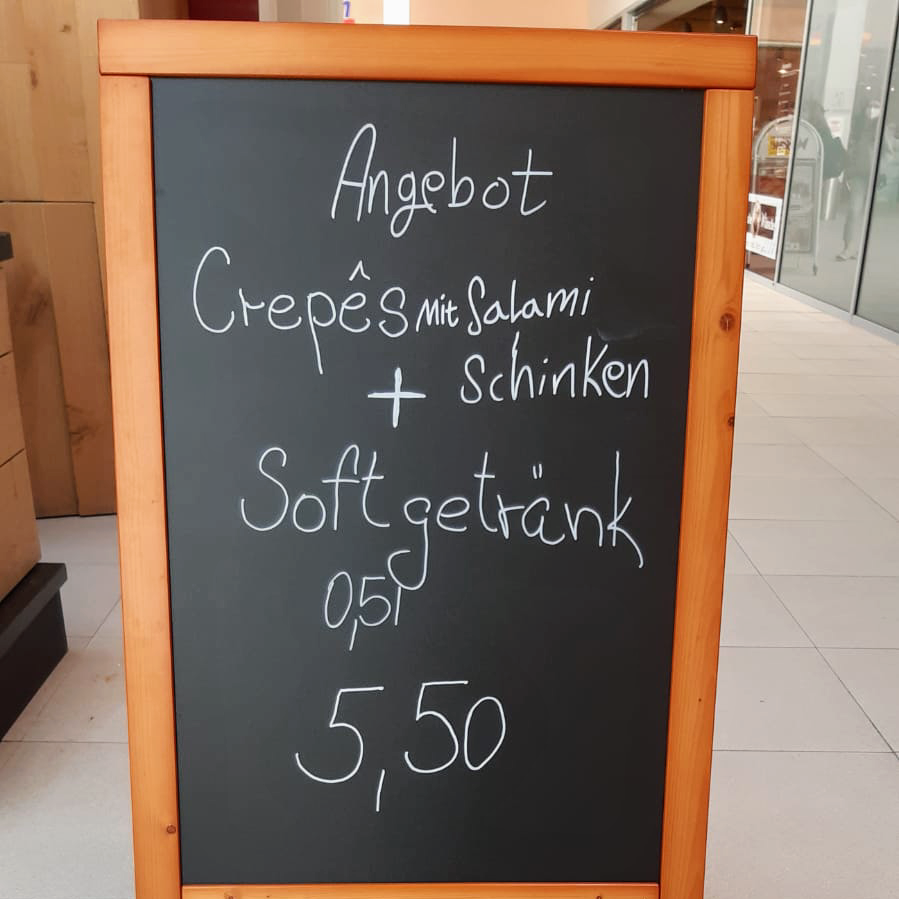 Angebot
Crepês mit Salami
+ Schinken
Softgetränk
0,5l
5,50